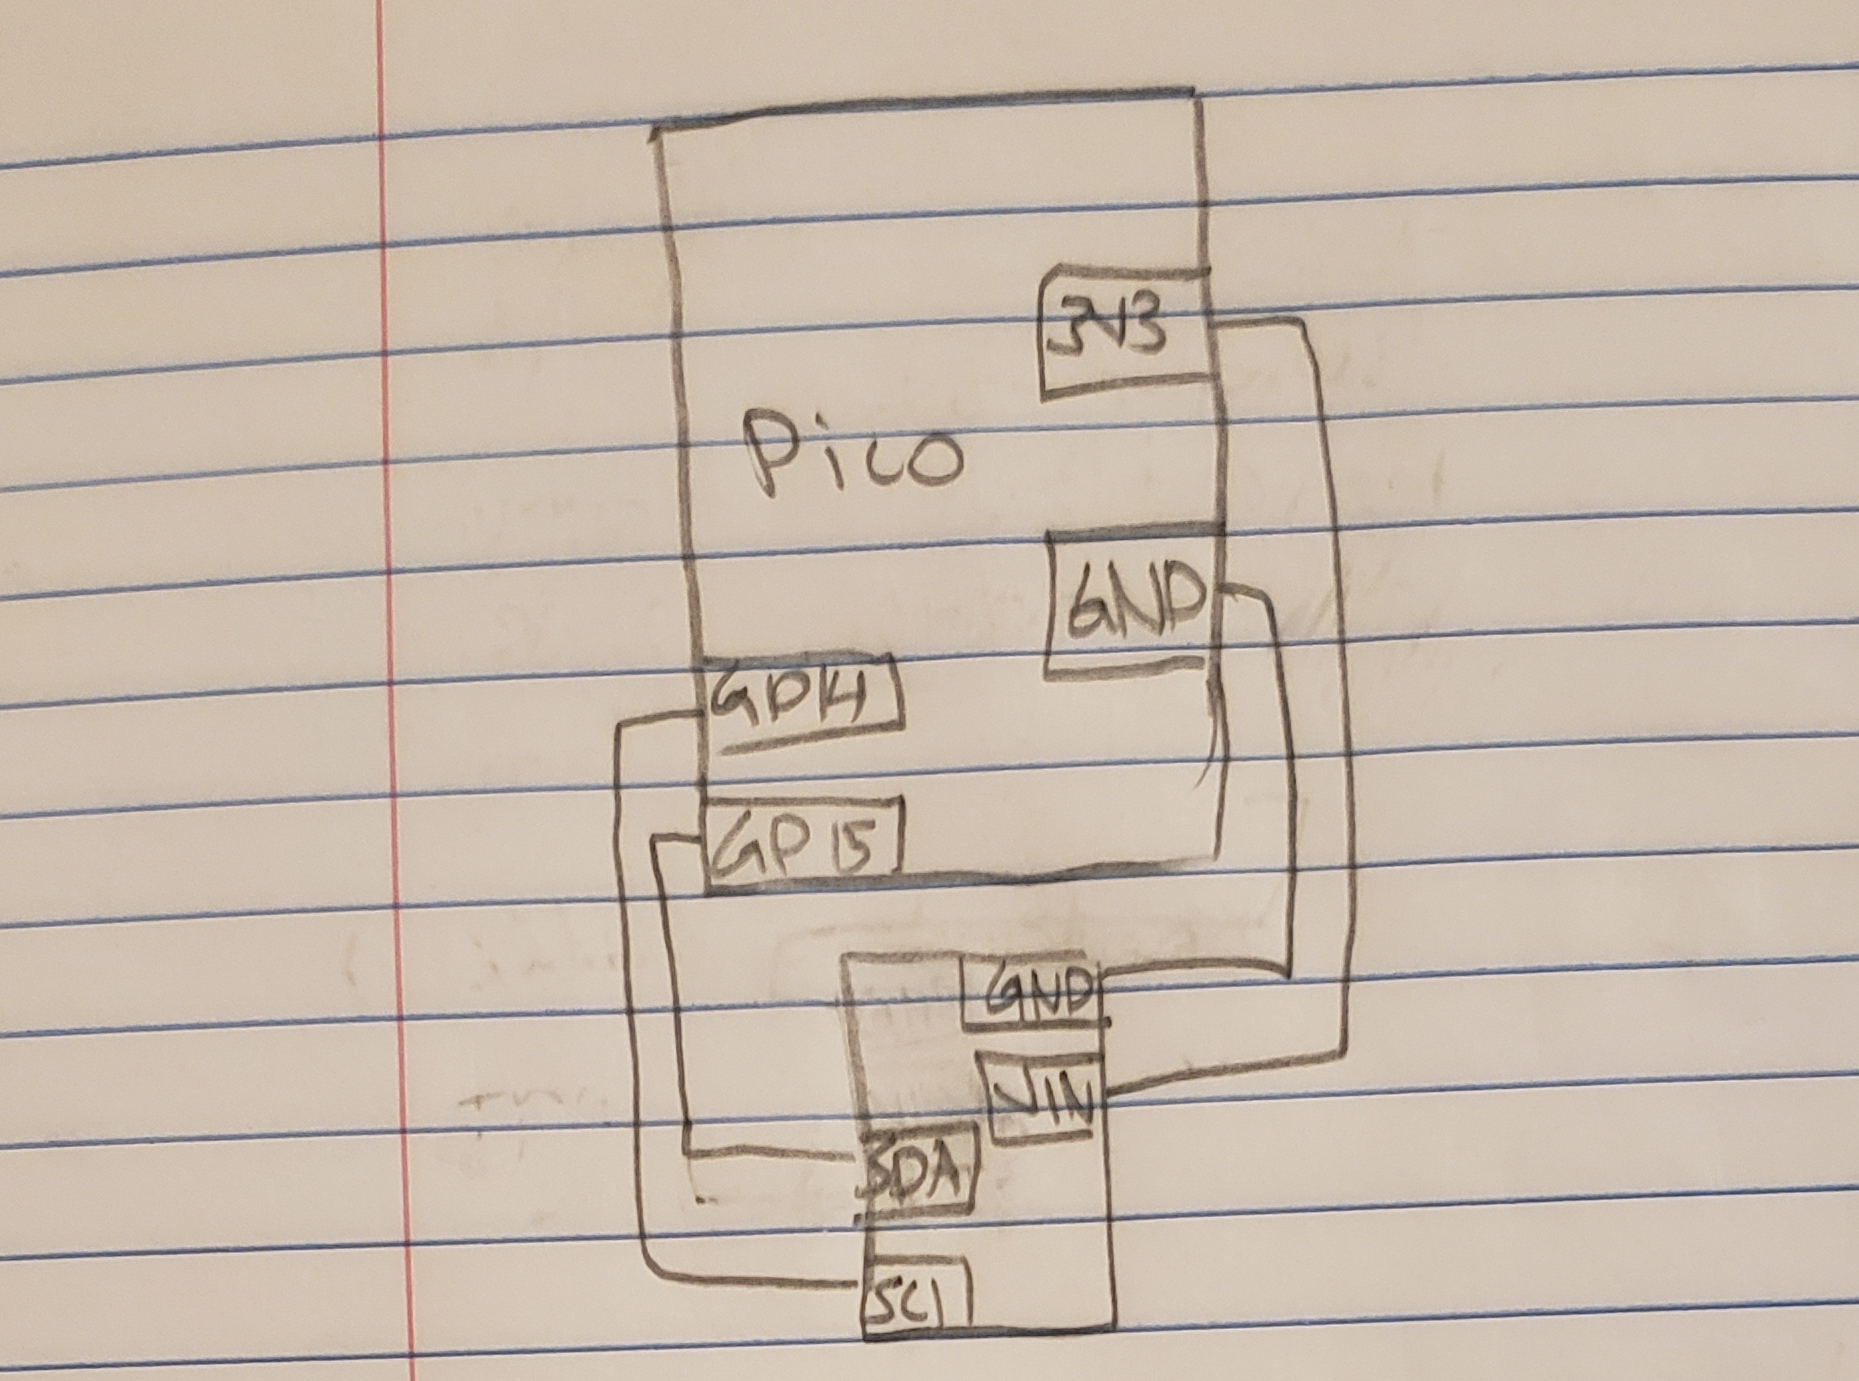 3V3
Pico
GND
GP14
GP15
GND
VIN
SDA
SCl